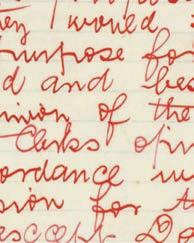 would
purpose fo
d and bes
inion of the
Clerks opin
ordance w
sion for
escept De